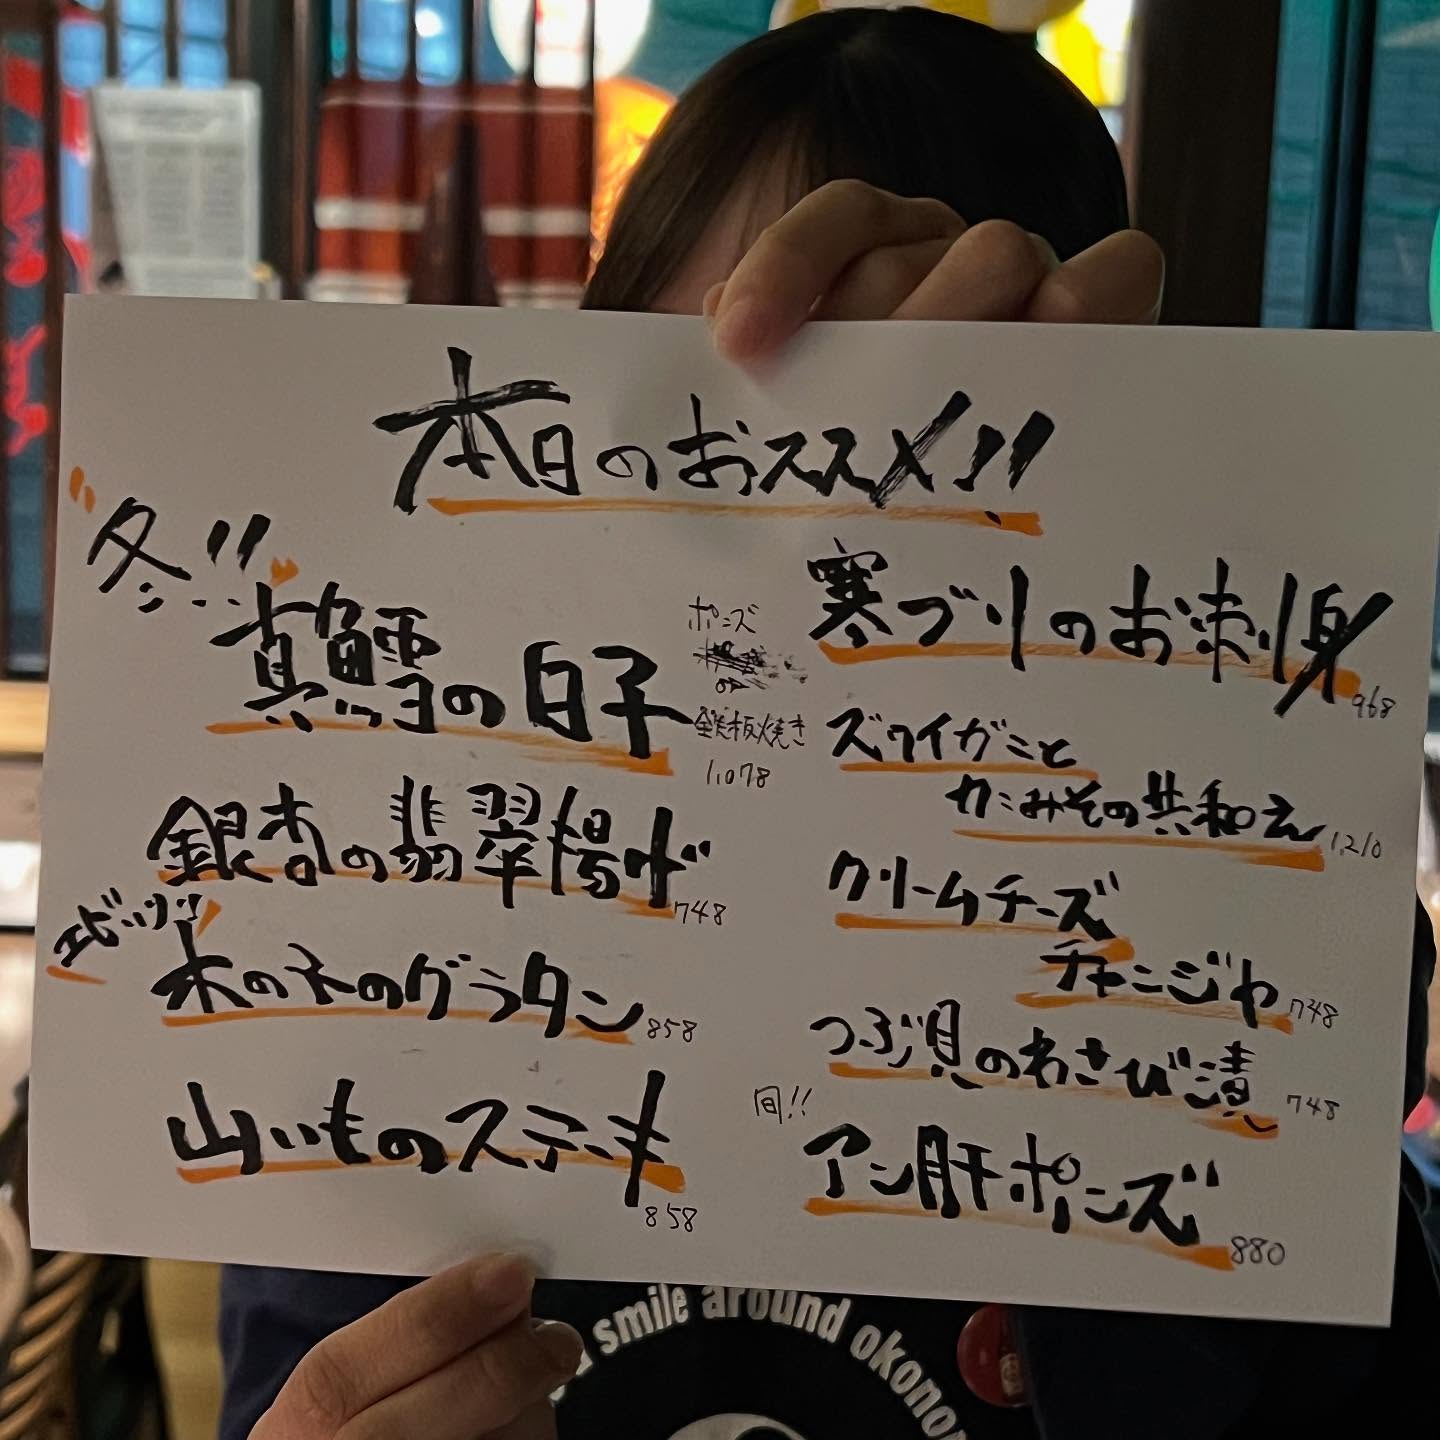 本日のおススメ!!
"冬!!"
真鱈の白子
ポンズ
or
鉄板焼き
1,078
銀杏の翡翠揚げ
748
エビソリ!
木の子のグラタン
858
山いものステーキ
858
寒ブリのお刺身
968
ズワイガニと
カニみその共和え
1,210
クリームチーズ
チャンジャ
748
つぶ貝のわさび漬
748
旬!!
アン肝ポンズ
880
smile around okono